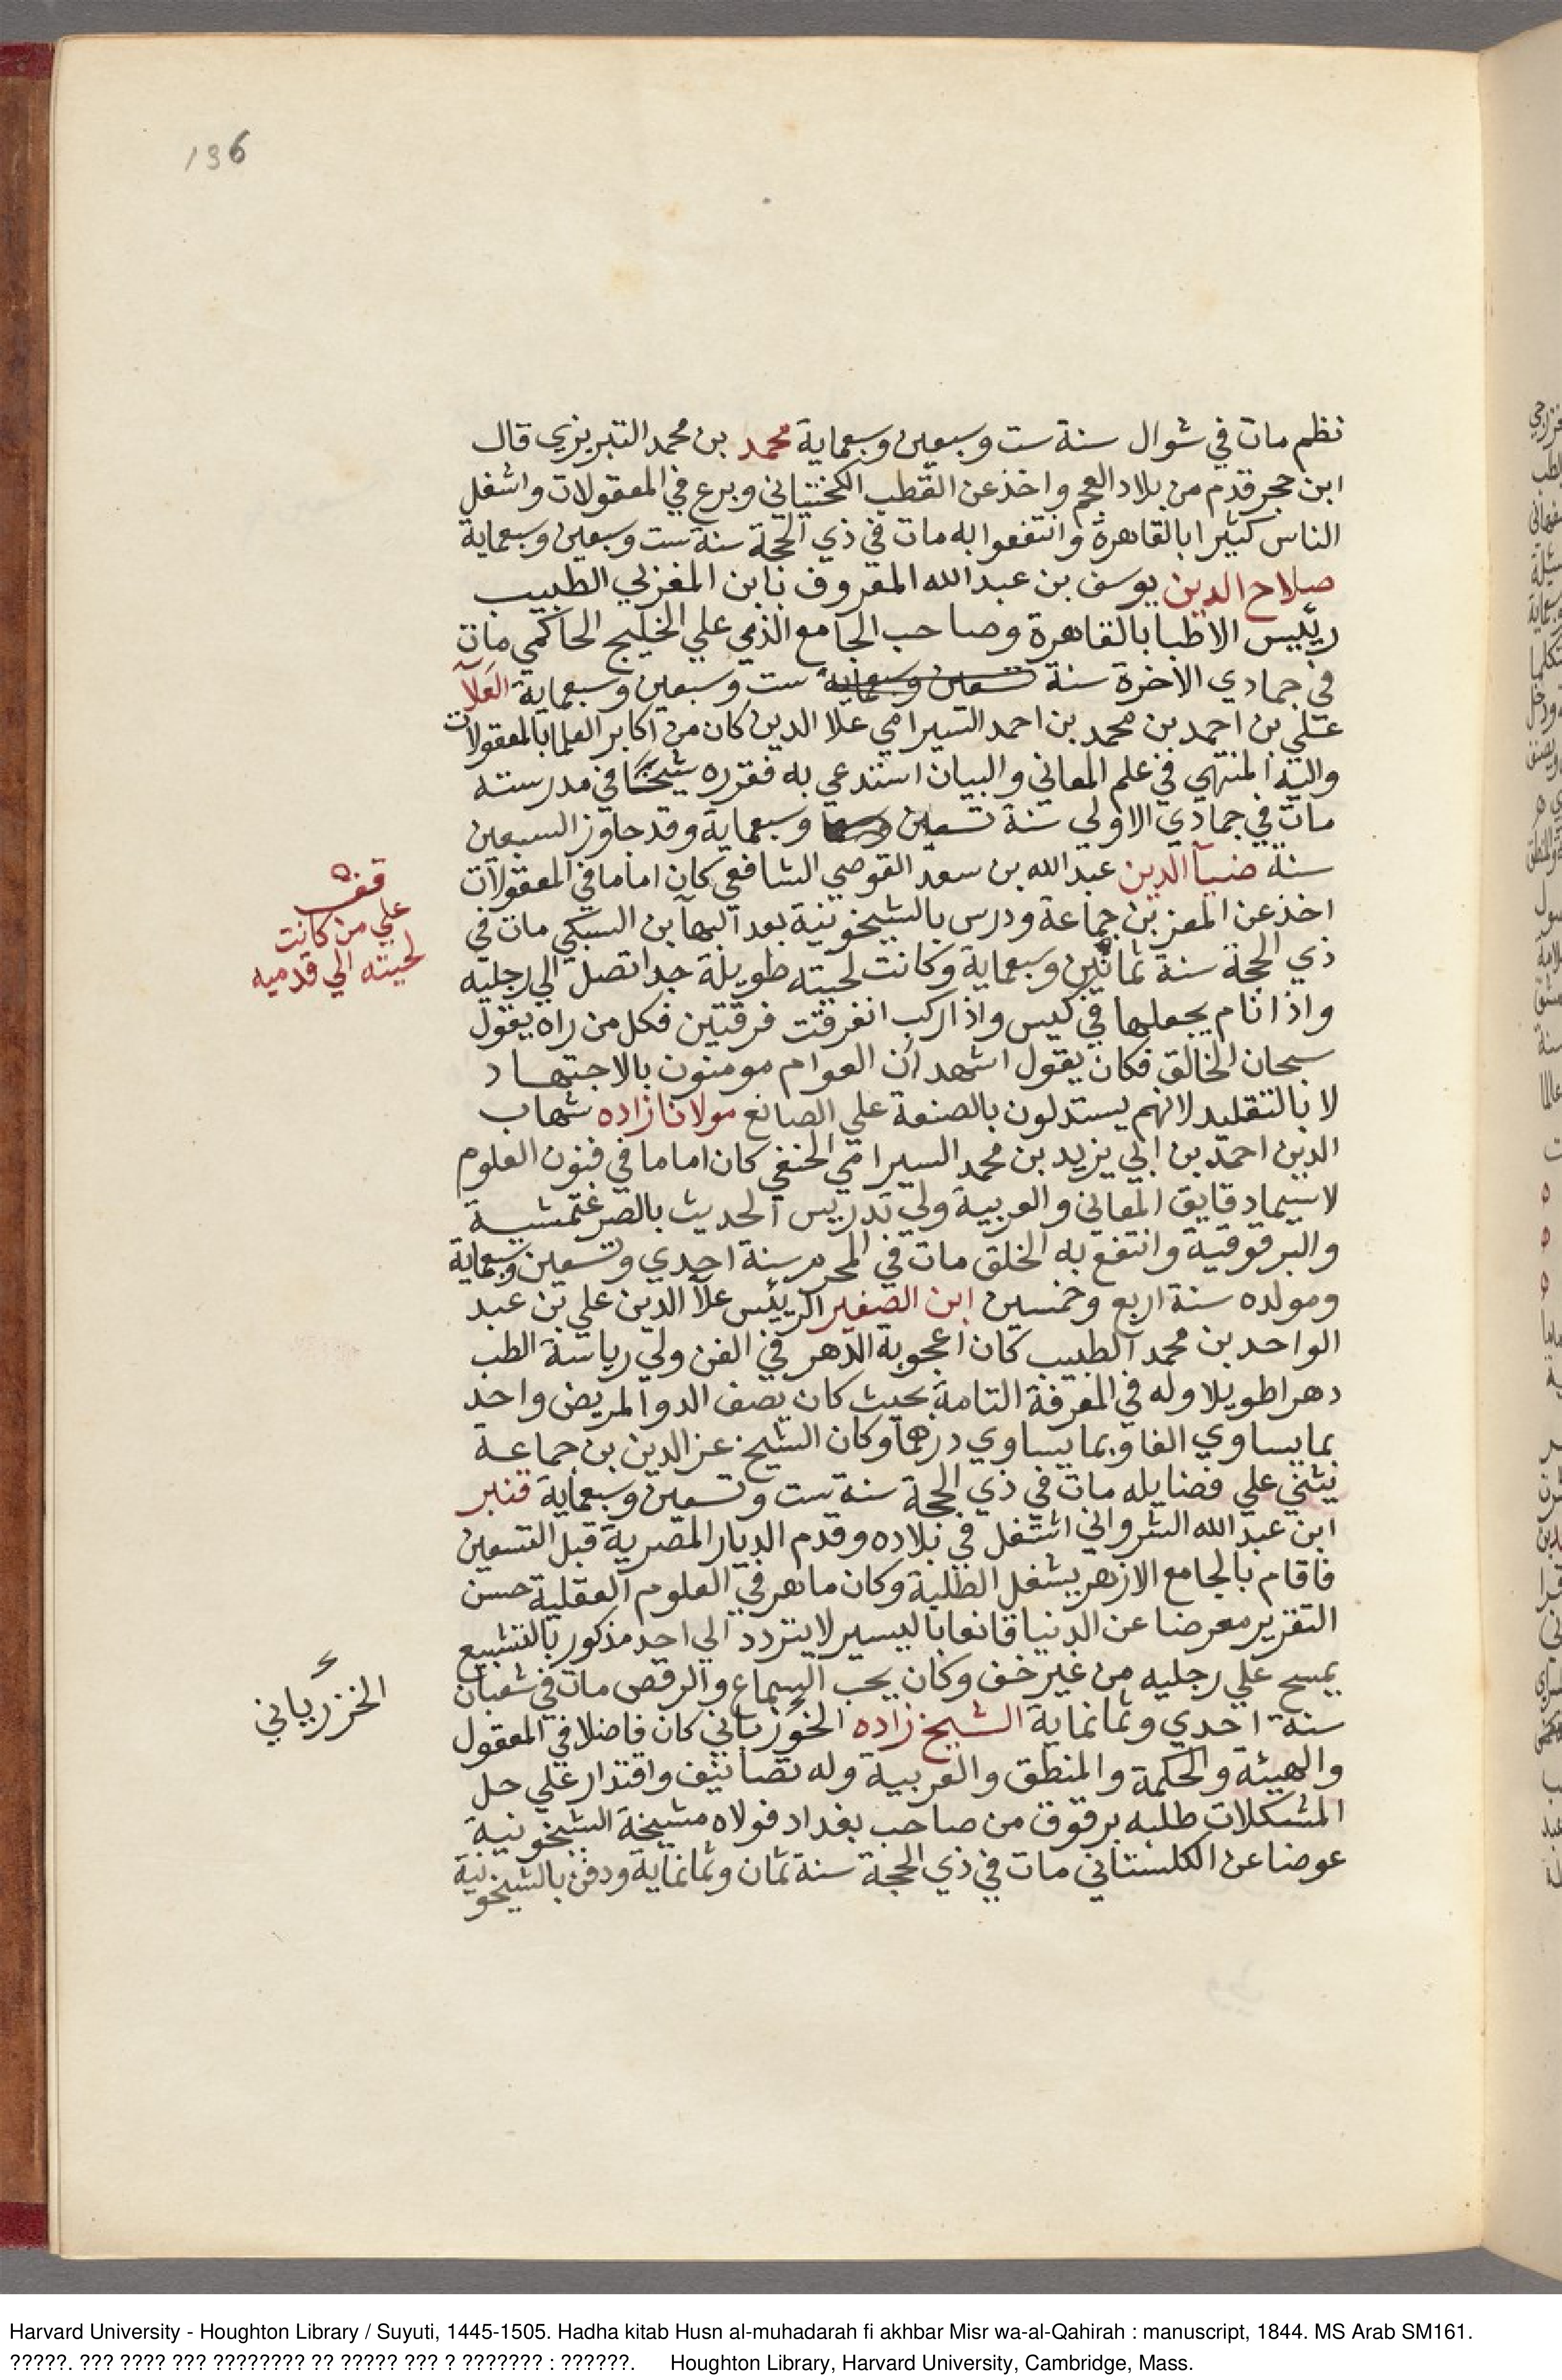 136
نظم مات في شوال سنة ست وسبعين وسبعماية محمد بن محمد التبريزي قال
ابن حجر قدم من بلاد العجم واخذ عن القطب الكحنتاني وبرع في المعقولات واشغل
الناس كثيرا بالقاهرة وانتفعوا به مات في ذي الحجة سنة ست وسبعين وسبعماية
صلاح الدين يوسف بن عبد الله المعروف بابن المغربي الطبيب
رييس الاطبا بالقاهرة وصاحب الجامع الذي علي الخليج الحاكمي مات
في جمادي الاخرة سنة تسعين وسبعماية ست وسبعين وسبعماية العلآ
علي بن احمد بن محمد بن احمد السيرامي علا الدين كان من اكابر العلما بالمعقولات
واليه المنتهي في علم المعاني والبيان استدعي به فقرره شيخا في مدرسته
مات في جمادي الاولي سنة تسعين وسبعماية وقد جاوز السبعين
سنة ضيآ الدين عبد الله بن سعد القوصي الشافعي كان اماما في المعقولات
اخذ عن المعز بن جماعة ودرس بالشيخونية بعد البهآ بن السبكي مات في
ذي الحجة سنة ثمانين وسبعماية وكانت لحيته طويلة جدا تصل الي رجليه
واذا نام يجعلها في كيس واذا ركب انفرقت فرقتين فكل من راه يقول
سبحان الخالق فكان يقول اشهد ان العوام مومنون بالاجتهاد
لا بالتقليد لانهم يستدلون بالصنعة علي الصانع مولانا زاده شهاب
الدين احمد بن ابي يزيد بن محمد السيرامي الحنفي كان اماما في فنون العلوم
لاسيما دقايق المعاني والعربية ولي تدريس الحديث بالصرغتمشية
والبرقوقية وانتفع به الخلق مات في المحرم سنة احدي وتسعين وسبعماية
ومولده سنة اربع وخمسين ابن الصغير الرييس علآ الدين علي بن عبد
الواحد بن محمد الطبيب كان اعجوبة الدهر في الفن ولي رياسة الطب
دهرا طويلا وله في المعرفة التامة بحيث كان يصف الدوا لمريض واحد
بما يساوي الفا وبما يساوي درهما وكان الشيخ عز الدين بن جماعة
يثني علي فضايله مات في ذي الحجة سنة ست وتسعين وسبعماية قنبر
ابن عبد الله الشرواني اشتغل في بلاده وقدم الديار المصرية قبل التسعين
فاقام بالجامع الازهر يشغل الطلبة وكان ماهر في العلوم العقلية حسن
التقرير معرضا عن الدنيا قانعا باليسير لا يتردد الي احد مذكور بالتشيع
يمسح علي رجليه من غير خف وكان يحب السماع والرقص مات في شعبان
سنة احدي وثمانماية الشيخ زاده الخرزياني كان فاضلا في المعقول
والهيئة والحكمة والمنطق والعربية وله تصانيف واقتدار علي حل
المشكلات طلبه برقوق من صاحب بغداد فولاه مشيخة الشيخونية
عوضا عن الكلستاني مات في ذي الحجة سنة ثمان وثمانماية ودفن بالشيخونية
قف
علي من كانت
لحيته الي قدميه
الخزرياني
Harvard University - Houghton Library / Suyuti, 1445-1505. Hadha kitab Husn al-muhadarah fi akhbar Misr wa-al-Qahirah : manuscript, 1844. MS Arab SM161.
?????. ??? ???? ??? ???????? ?? ????? ??? ? ??????? : ??????. Houghton Library, Harvard University, Cambridge, Mass.